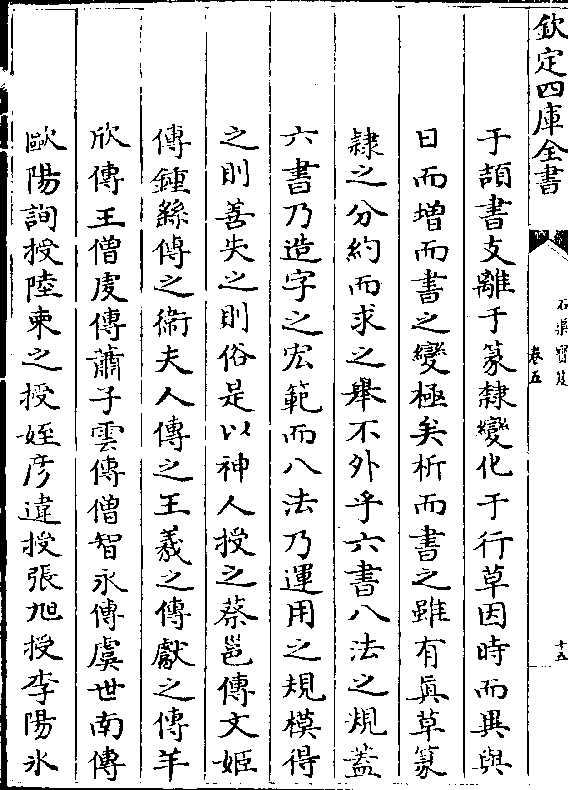 欽定四庫全書
石渠寶笈
卷五
十五
于頡書支離于篆隸變化于行草因時而異與
日而增而書之變極矣析而書之雖有真草篆
隸之分約而求之舉不外乎六書八法之規蓋
六書乃造字之宏範而八法乃運用之規模得
之則善失之則俗是以神人授之蔡邕傳文姬
傳鍾繇傳之衛夫人傳之王羲之傳獻之傳羊
欣傳王僧虔傳蕭子雲傳僧智永傳虞世南傳
歐陽詢授陸柬之授姪彥違授張旭授李陽氷